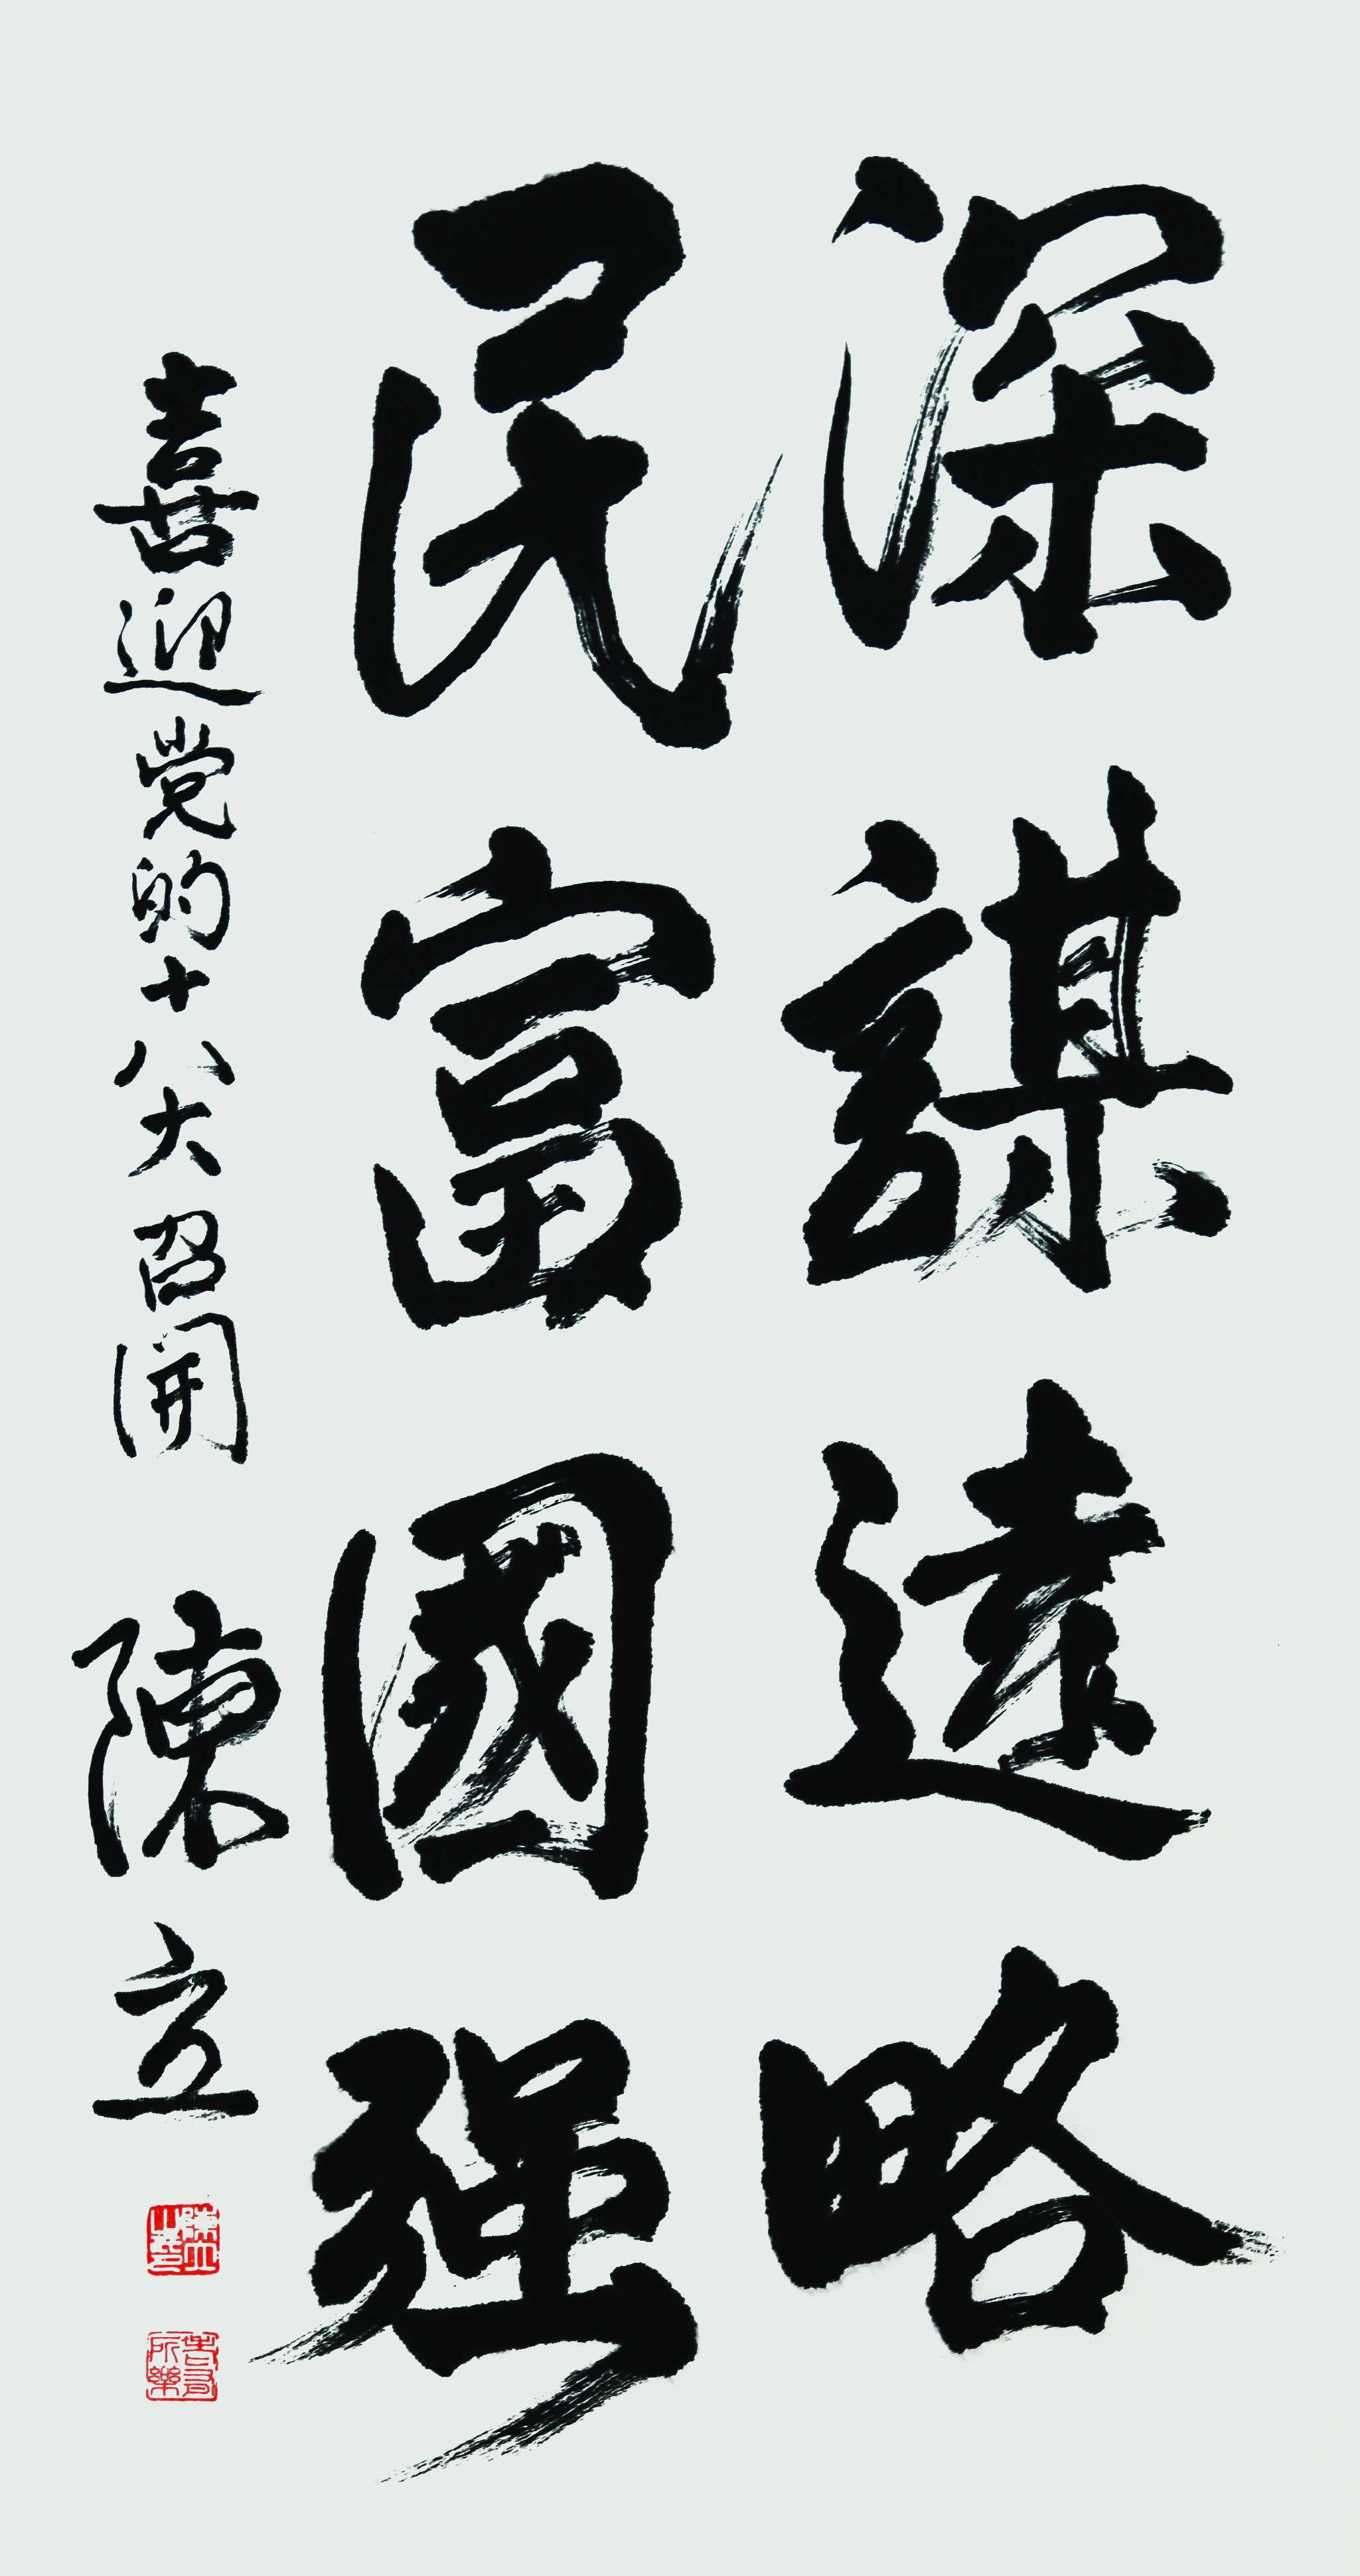 深謀遠略
民富國强
喜迎党的十八大召開 陳立